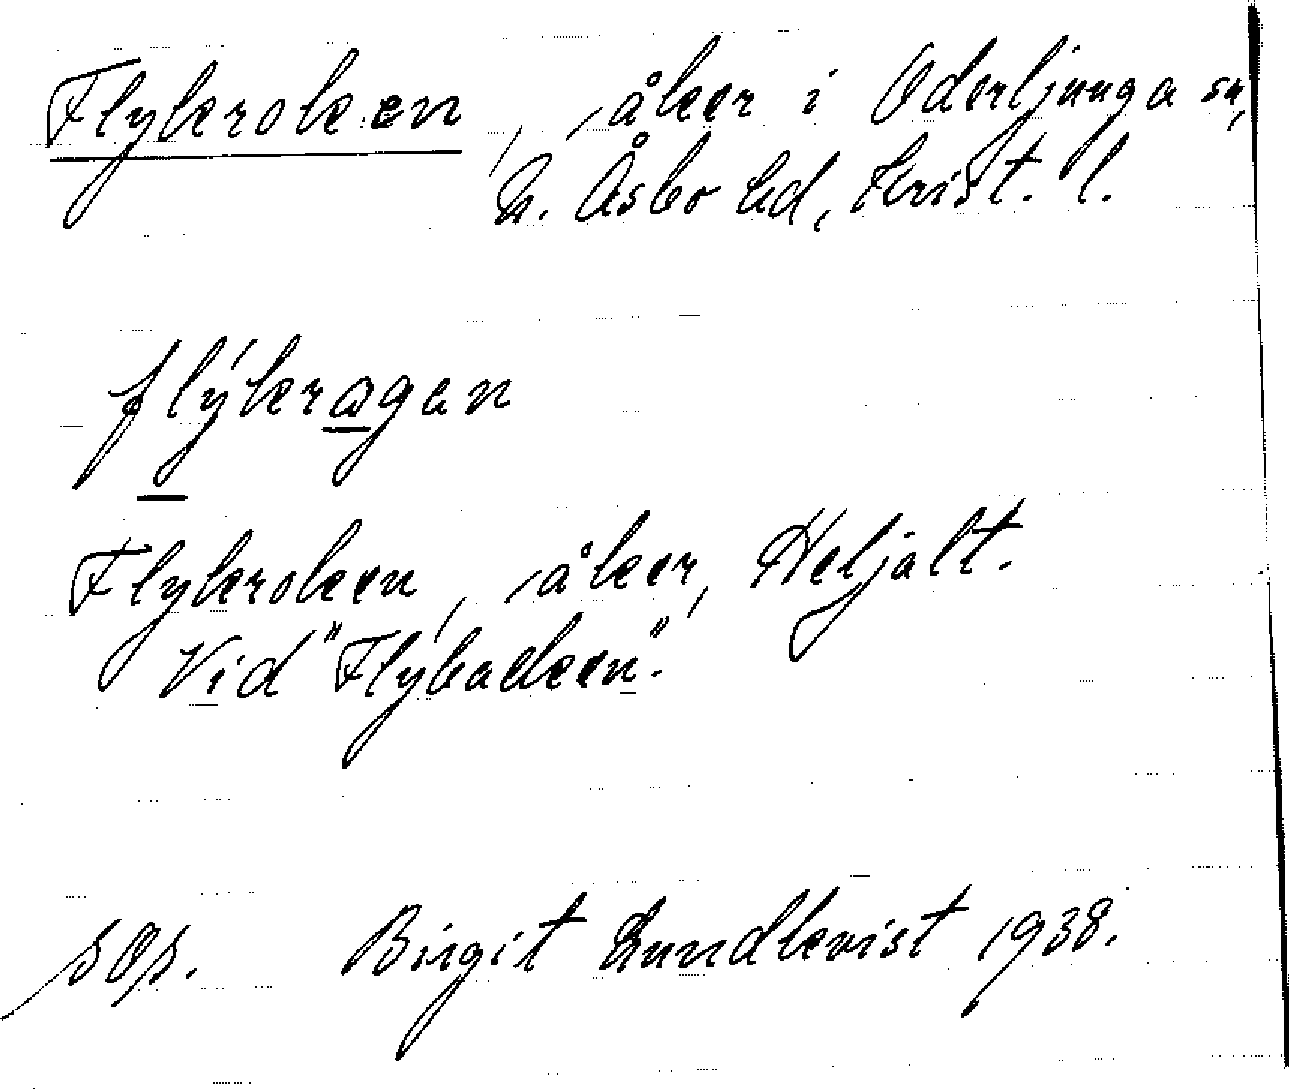 Flykroken, åker i Oderljunga sn,
N. Åsbo hd, Krist. l.
flýkragan
Flykroken, åker, Heljalt.
Vid "Flybacken".
Birgit Lundkvist 1938.